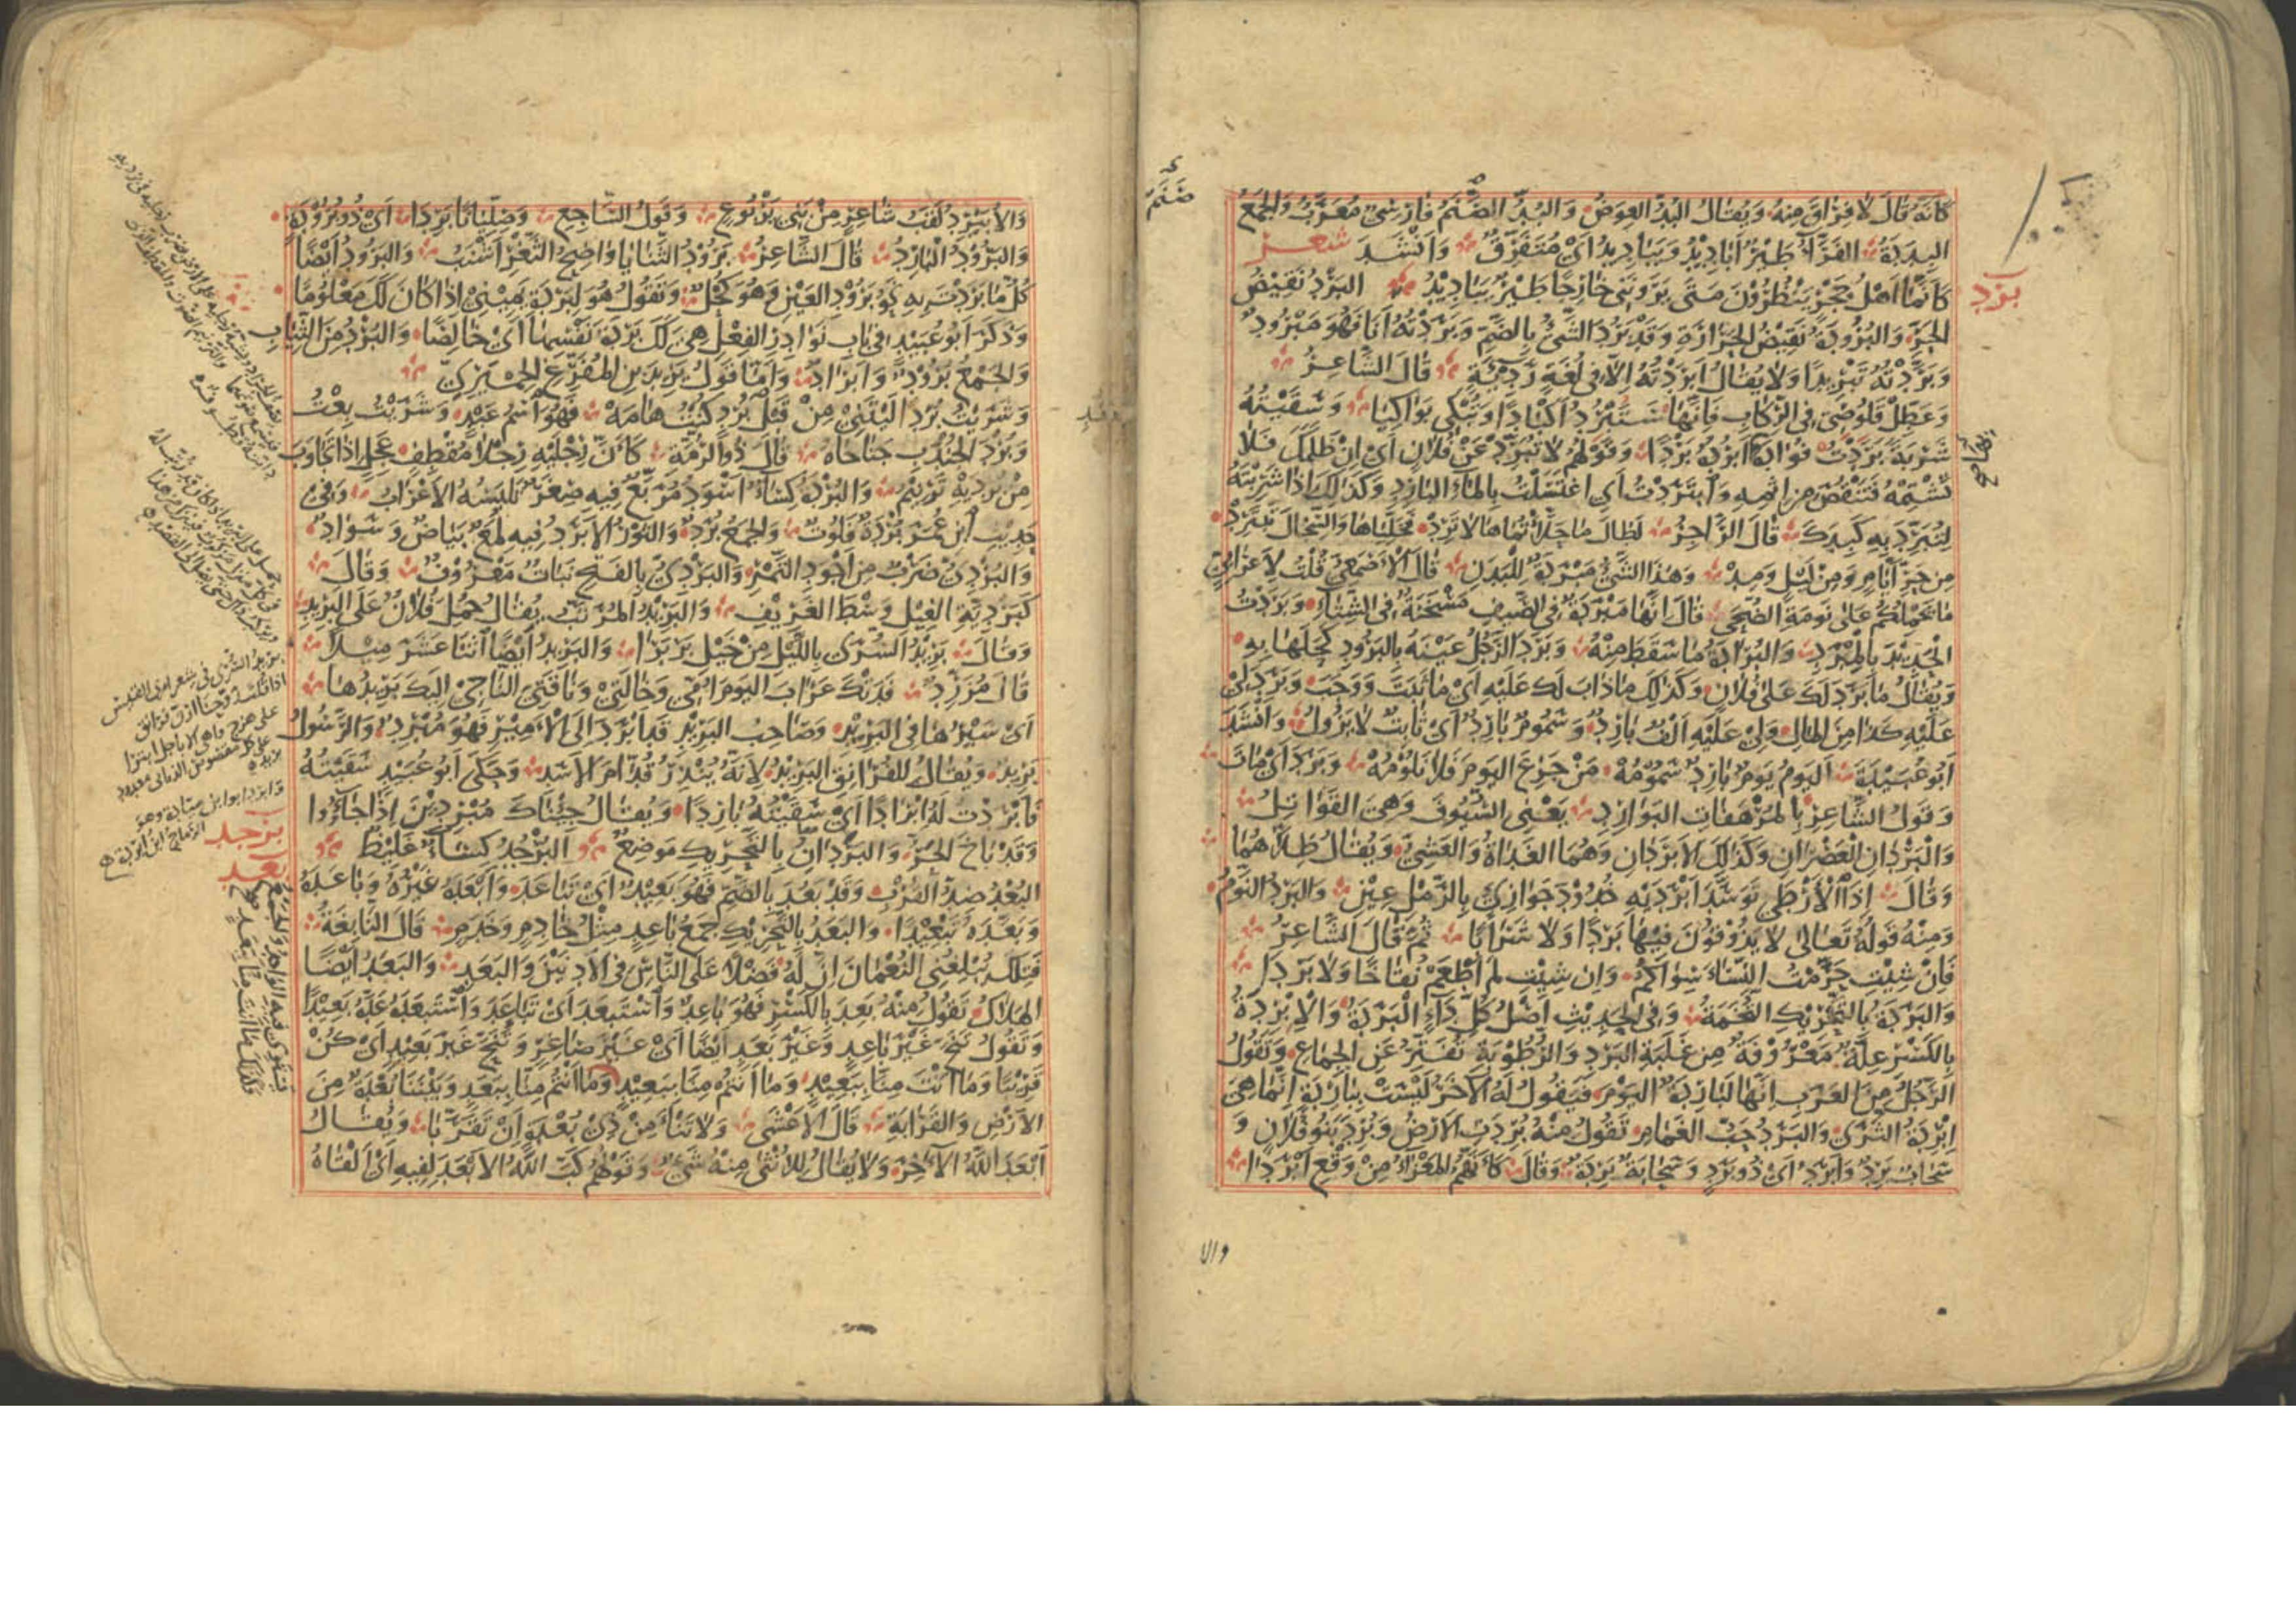 كَأَنَّهُ قَالَ لَا فِرَاقَ مِنْهُ وَيُقَالُ البُدُّ العِوَضُ وَالبُدُّ الصَّنَمُ فَارِسِيٌّ مُعَرَّبٌ وَالجَمْعُ
البِدَدَةُ الفَرَّاءُ طَيْرٌ أَبَادِيدُ وَيَبَادِيدُ أَيْ مُتَفَرِّقٌ وَأَنْشَدَ شعر
كَأَنَّمَا أَهْلُ حُجْرٍ يَنْظُرُونَ مَتَى يَرَوْنَنِي خَارِجًا طَيْرٌ يَبَادِيدُ البَرْدُ نَقِيضُ
برد
الحَرِّ وَالبُرُودَةُ نَقِيضُ الحَرَارَةِ وَقَدْ بَرُدَ الشَّيْءُ بِالضَّمِّ وَبَرَدْتُهُ أَنَا فَهُوَ مَبْرُودٌ
وَبَرَّدْتُهُ تَبْرِيدًا وَلَا يُقَالُ أَبْرَدْتُهُ إِلَّا فِي لُغَةٍ رَدِيئَةٍ قَالَ الشَّاعِرُ
وَعَطِّلْ قَلُوصِي فِي الرِّكَابِ فَإِنَّهَا سَتَبْرُدُ أَكْبَادًا وَتُبْكِي بَوَاكِيَا وَسَقَيْتُهُ
شَرْبَةً بَرَدَتْ فُؤَادَهُ أَبْرُدُهُ بَرْدًا وَقَوْلُهُمْ لَا تُبَرِّدْ عَنْ فُلَانٍ أَيْ إِنْ ظَلَمَكَ فَلَا
تَشْتِمْهُ فَتَنْقُصَ مِنْ إِثْمِهِ وَابْتَرَدْتُ أَيِ اغْتَسَلْتُ بِالمَاءِ البَارِدِ وَكَذَلِكَ إِذَا شَرِبْتَهُ
لِتُبَرِّدَ بِهِ كَبِدَكَ قَالَ الرَّاجِزُ لَطَالَ مَا حَلَّأْتُمَاهَا لَا تَرِدْ فَخَلِّيَاهَا وَالسِّجَالَ تَبْتَرِدْ
مِنْ حَرِّ أَيَّامٍ وَمِنْ لَيْلٍ وَمِدْ وَهَذَا الشَّيْءُ مَبْرَدَةٌ لِلْبَدَنِ قَالَ الأَصْمَعِيُّ قُلْتُ لِأَعْرَابِيٍّ
مَا يَحْمِلُكُمْ عَلَى نَوْمَةِ الضُّحَى قَالَ إِنَّهَا مَبْرَدَةٌ فِي الصَّيْفِ مَسْخَنَةٌ فِي الشِّتَاءِ وَبَرَدْتُ
الحَدِيدَ بِالمِبْرَدِ وَالبُرَادَةُ مَا سَقَطَ مِنْهُ وَبَرَدَ الرَّجُلُ عَيْنَهُ بِالبَرُودِ كَحَلَهَا بِهِ
وَيُقَالُ مَا بَرَدَ لَكَ عَلَى فُلَانٍ وَكَذَلِكَ مَا ذَابَ لَكَ عَلَيْهِ أَيْ مَا ثَبَتَ وَوَجَبَ وَبَرَدَ لِي
عَلَيْهِ كَذَا مِنَ المَالِ وَلِيْ عَلَيْهِ أَلْفٌ بَارِدٌ وَسَمُومٌ بَارِدٌ أَيْ ثَابِتٌ لَا يَزُولُ وَأَنْشَدَ
أَبُو عُبَيْدَةَ اليَوْمُ يَوْمٌ بَارِدٌ سَمُومُهْ مَنْ جَزِعَ اليَوْمَ فَلَا نَلُومُهْ وَبَرَدَ أَيْ مَاتَ
وَقَوْلُ الشَّاعِرِ بِالمُرْهَفَاتِ البَوَارِدِ يَعْنِي السُّيُوفَ وَهِيَ القَوَاتِلُ
وَالبَرْدَانِ العَصْرَانِ وَكَذَلِكَ الأَبْرَدَانِ وَهُمَا الغَدَاةُ وَالعَشِيُّ وَيُقَالُ ظِلَّاهُمَا
وَقَالَ إِذَا الأَرْطَى تَوَسَّدَ أَبْرَدَيْهِ خُدُودُ جَوَازِئٍ بِالرَّمْلِ عِيْنِ وَالبَرْدُ النَّوْمُ
وَمِنْهُ قَوْلُهُ تَعَالَى لَا يَذُوقُونَ فِيهَا بَرْدًا وَلَا شَرَابًا ثُمَّ قَالَ الشَّاعِرُ
فَإِنْ شِئْتِ حَرَّمْتُ النِّسَاءَ سِوَاكُمُ وَإِنْ شِئْتِ لَمْ أَطْعَمْ نُقَاخًا وَلَا بَرْدَا
وَالبَرَدَةُ بِالتَّحْرِيكِ التُّخَمَةُ وَفِي الحَدِيثِ أَصْلُ كُلِّ دَاءٍ البَرَدَةُ وَالإِبْرِدَةُ
بِالكَسْرِ عِلَّةٌ مَعْرُوفَةٌ مِنْ غَلَبَةِ البَرْدِ وَالرُّطُوبَةِ تُفَتِّرُ عَنِ الجِمَاعِ وَيَقُولُ
الرَّجُلُ مِنَ العَرَبِ إِنَّهَا لَبَارِدَةُ اليَوْمِ فَيَقُولُ لَهُ الآخَرُ لَيْسَتْ بِبَارِدَةٍ إِنَّمَا هِيَ
إِبْرِدَةُ الثَّرَى وَالبَرَدُ حَبُّ الغَمَامِ تَقُولُ مِنْهُ بُرِدَتِ الأَرْضُ وَبُرِدَ بَنُو فُلَانٍ وَ
سَحَابٌ بَرِدٌ وَأَبْرَدُ أَيْ ذُو بَرَدٍ وَسَحَابَةٌ بَرِدَةٌ وَقَالَ كَأَنَّهُمُ المَعْزَاءُ مِنْ وَقْعِ أَبْرَدَا
والا
وَالأُبَيْرِدُ لَقَبُ شَاعِرٍ مِنْ بَنِي يَرْبُوعٍ وَقَوْلُ السَّاجِعِ وَصِلِّيَانًا بَرِدَا أَيْ ذُو بُرُودَةٍ
وَالبَرُودُ البَارِدُ قَالَ الشَّاعِرُ بَرُودُ الثَّنَايَا وَاضِحُ الثَّغْرِ أَشْنَبُ وَالبَرُودُ أَيْضًا
كُلُّ مَا بَرَدْتَ بِهِ نَحْوُ بَرُودِ العَيْنِ وَهُوَ كُحْلٌ وَتَقُولُ هُوَ لِيْ بَرْدَةُ يَمِيْنِيْ إِذَا كَانَ لَكَ مَعْلُومًا
وَذَكَرَ أَبُو عُبَيْدٍ فِي بَابِ نَوَادِرِ الفِعْلِ هِيَ لَكَ بَرْدَةُ نَفْسِهَا أَيْ خَالِصًا وَالبُرْدُ مِنَ الثِّيَابِ
وَالجَمْعُ بُرُودٌ وَأَبْرَادٌ وَأَمَّا قَوْلُ يَزِيدَ بْنِ المُفَرِّغِ الحِمْيَرِيِّ
وَشَرَيْتُ بُرْدًا لَيْتَنِيْ مِنْ قَبْلِ بُرْدٍ كُنْتُ هَامَهْ فَهُوَ اسْمُ عَبْدٍ وَشَرَيْتُ بِعْتُ
وَبُرْدَا الجُنْدُبِ جَنَاحَاهُ قَالَ ذُو الرُّمَّةِ كَأَنَّ رِجْلَيْهِ رِجْلَا مُقْطِفٍ عَجِلٍ إِذَا تَجَاوَبَ
مِنْ بُرْدَيْهِ تَرْنِيمُ وَالبُرْدَةُ كِسَاءٌ أَسْوَدُ مُرَبَّعٌ فِيهِ صِغَرٌ تَلْبَسُهُ الأَعْرَابُ وَفِيْ
حَدِيثِ ابْنِ عُمَرَ بُرْدَةٌ فَلُوتٌ وَالجَمْعُ بُرَدٌ وَالثَّوْرُ الأَبْرَدُ فِيهِ لُمَعُ بَيَاضٍ وَسَوَادٍ
وَالبُرْدِيُّ ضَرْبٌ مِنْ أَجْوَدِ التَّمْرِ وَالبَرْدِيُّ بِالفَتْحِ نَبَاتٌ مَعْرُوفٌ وَقَالَ
كَبَرْدِيَّةِ الغِيْلِ وَسْطَ الغَرِيْفِ وَالبَرِيدُ المُرَتَّبُ يُقَالُ حُمِلَ فُلَانٌ عَلَى البَرِيدِ
وَقَالَ بَرِيْدَ السُّرَى بِاللَّيْلِ مِنْ خَيْلِ بَرْبَرَا وَالبَرِيدُ أَيْضًا اثْنَا عَشَرَ مِيْلًا
قَالَ مُزَرِّدٌ فَدَتْكَ عَرَابَ اليَوْمَ أُمِّي وَخَالَتِيْ وَنَاقَتِيَ النَّاجِيْ إِلَيْكَ بَرِيدُهَا
أَيْ سَيْرُهَا فِي البَرِيْدِ وَصَاحِبُ البَرِيْدِ قَدْ أَبْرَدَ إِلَى الأَمِيْرِ فَهُوَ مُبْرِدٌ وَالرَّسُولُ
بَرِيْدٌ وَيُقَالُ لِلفُرَانِقِ البَرِيْدُ لِأَنَّهُ يُنْذِرُ قُدَّامَ الأَسَدِ وَحَكَى أَبُو عُبَيْدٍ سَقَيْتُهُ
فَأَبْرَدْتُ لَهُ إِبْرَادًا أَيْ سَقَيْتُهُ بَارِدًا وَيُقَالُ جِئْنَاكَ مُبْرِدِيْنَ إِذَا جَاؤُوا
وَقَدْ بَاخَ الحَرُّ وَالبَرَدَانُ بِالتَّحْرِيكِ مَوْضِعٌ البُرْجُدُ كِسَاءٌ غَلِيْظٌ
برجد
البُعْدُ ضِدُّ القُرْبِ وَقَدْ بَعُدَ بِالضَّمِّ فَهُوَ بَعِيْدٌ أَيْ تَبَاعَدَ وَأَبْعَدَهُ غَيْرُهُ وَبَاعَدَهُ
بعد
وَبَعَّدَهُ تَبْعِيْدًا وَالبَعَدُ بِالتَّحْرِيكِ جَمْعُ بَاعِدٍ مِثْلُ خَادِمٍ وَخَدَمٍ قَالَ النَّابِغَةُ
فَتِلْكَ تُبْلِغُنِي النُّعْمَانَ إِنَّ لَهُ فَضْلًا عَلَى النَّاسِ فِي الأَدْنَيْنَ وَالبَعَدِ وَالبَعَدُ أَيْضًا
الهَلَاكُ تَقُولُ مِنْهُ بَعِدَ بِالكَسْرِ فَهُوَ بَاعِدٌ وَاسْتَبْعَدَ أَيْ تَبَاعَدَ وَاسْتَبْعَدَهُ عَدَّهُ بَعِيْدًا
وَتَقُولُ تَنَحَّ غَيْرَ بَاعِدٍ وَغَيْرَ بَعَدٍ أَيْضًا أَيْ غَيْرَ صَاغِرٍ وَتَنَحَّ غَيْرَ بَعِيْدٍ أَيْ كُنْ
قَرِيْبًا وَمَا أَنْتَ مِنَّا بِبَعِيْدٍ وَمَا أَنْتُمْ مِنَّا بِبَعِيْدٍ وَمَا أَنْتُمْ مِنَّا بِبَعَدٍ وَبَيْنَنَا بُعْدَةٌ مِنَ
الأَرْضِ وَالقَرَابَةِ قَالَ الأَعْشَى وَلَا تَنْأَ مِنْ ذِيْ بُعْدَةٍ إِنْ تَقَرَّبَا وَيُقَالُ
أَبْعَدَ اللهُ الآخَرَ وَلَا يُقَالُ لِلأُنْثَى مِنْهُ شَيْءٌ وَقَوْلُهُمْ كَبَّ اللهُ الأَبْعَدَ لِفِيهِ أَيْ أَلْقَاهُ